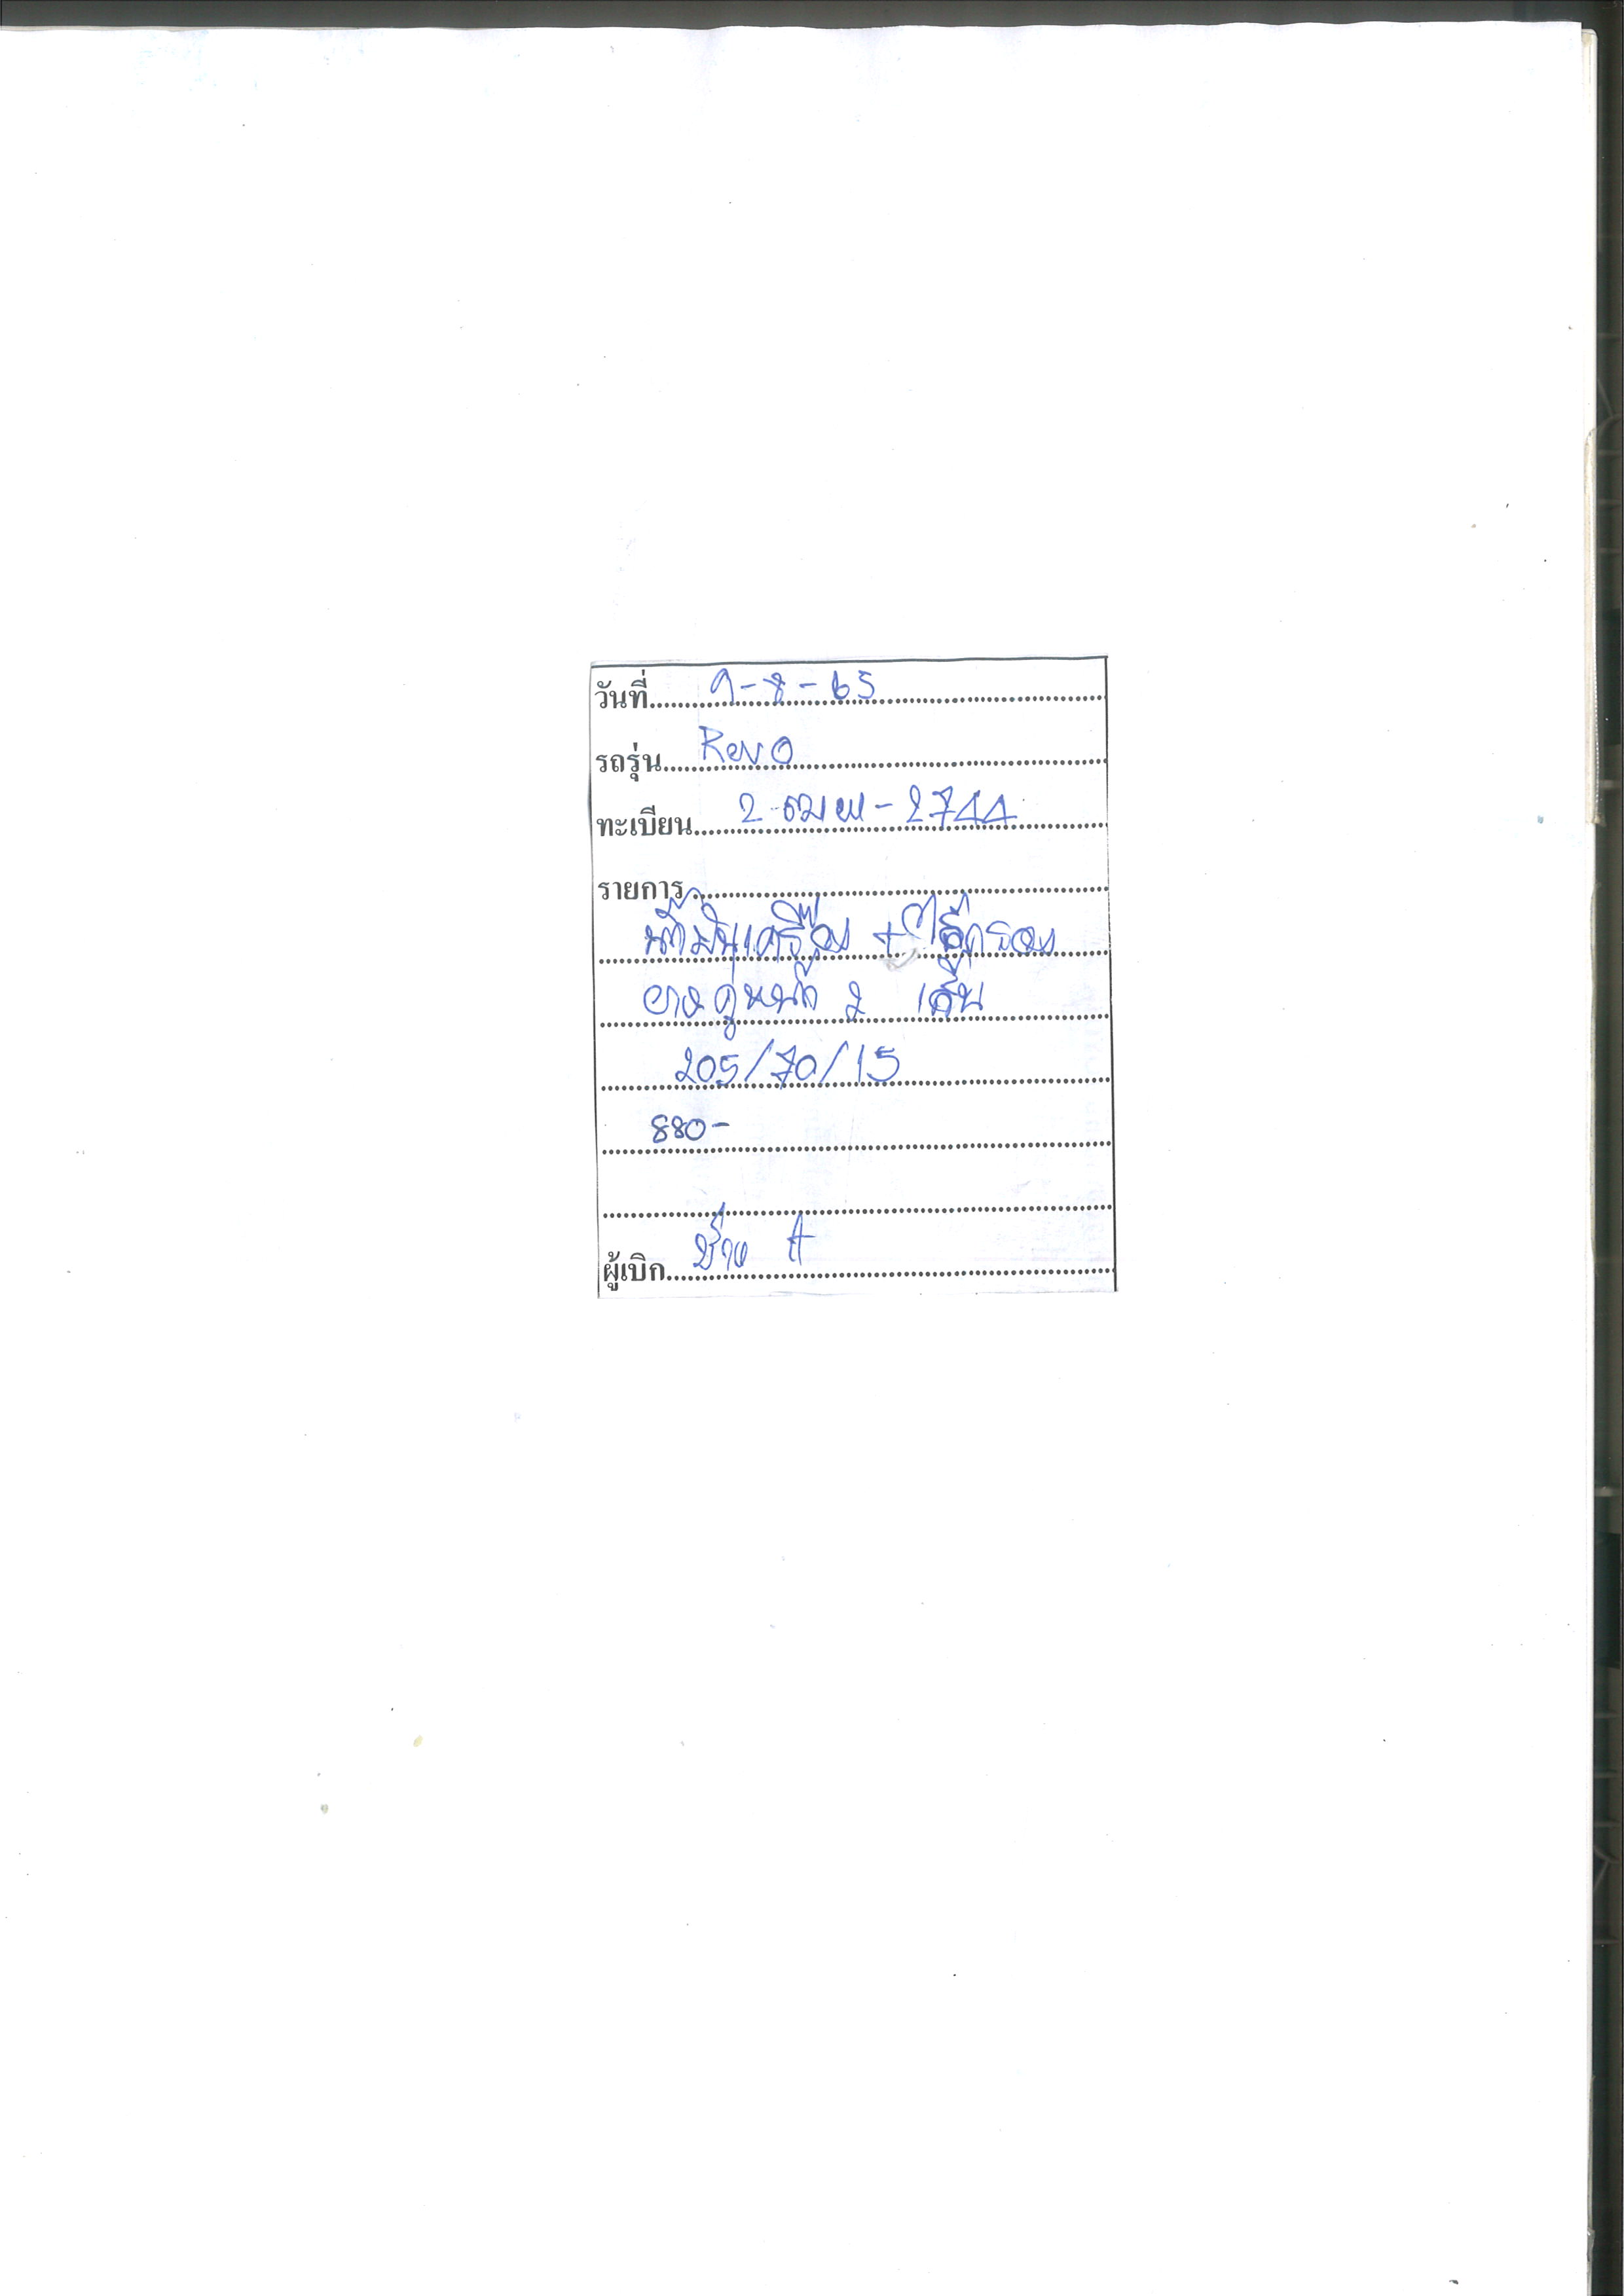 วันที่ 9-8-65
รถรุ่น Revo
ทะเบียน 2 ฒฬ - 2744
รายการ
น้ำมันเครื่อง + ไส้กรอง
ยางคู่หน้า 2 เส้น
205/70/15
880-
ผู้เบิก ช่าง A